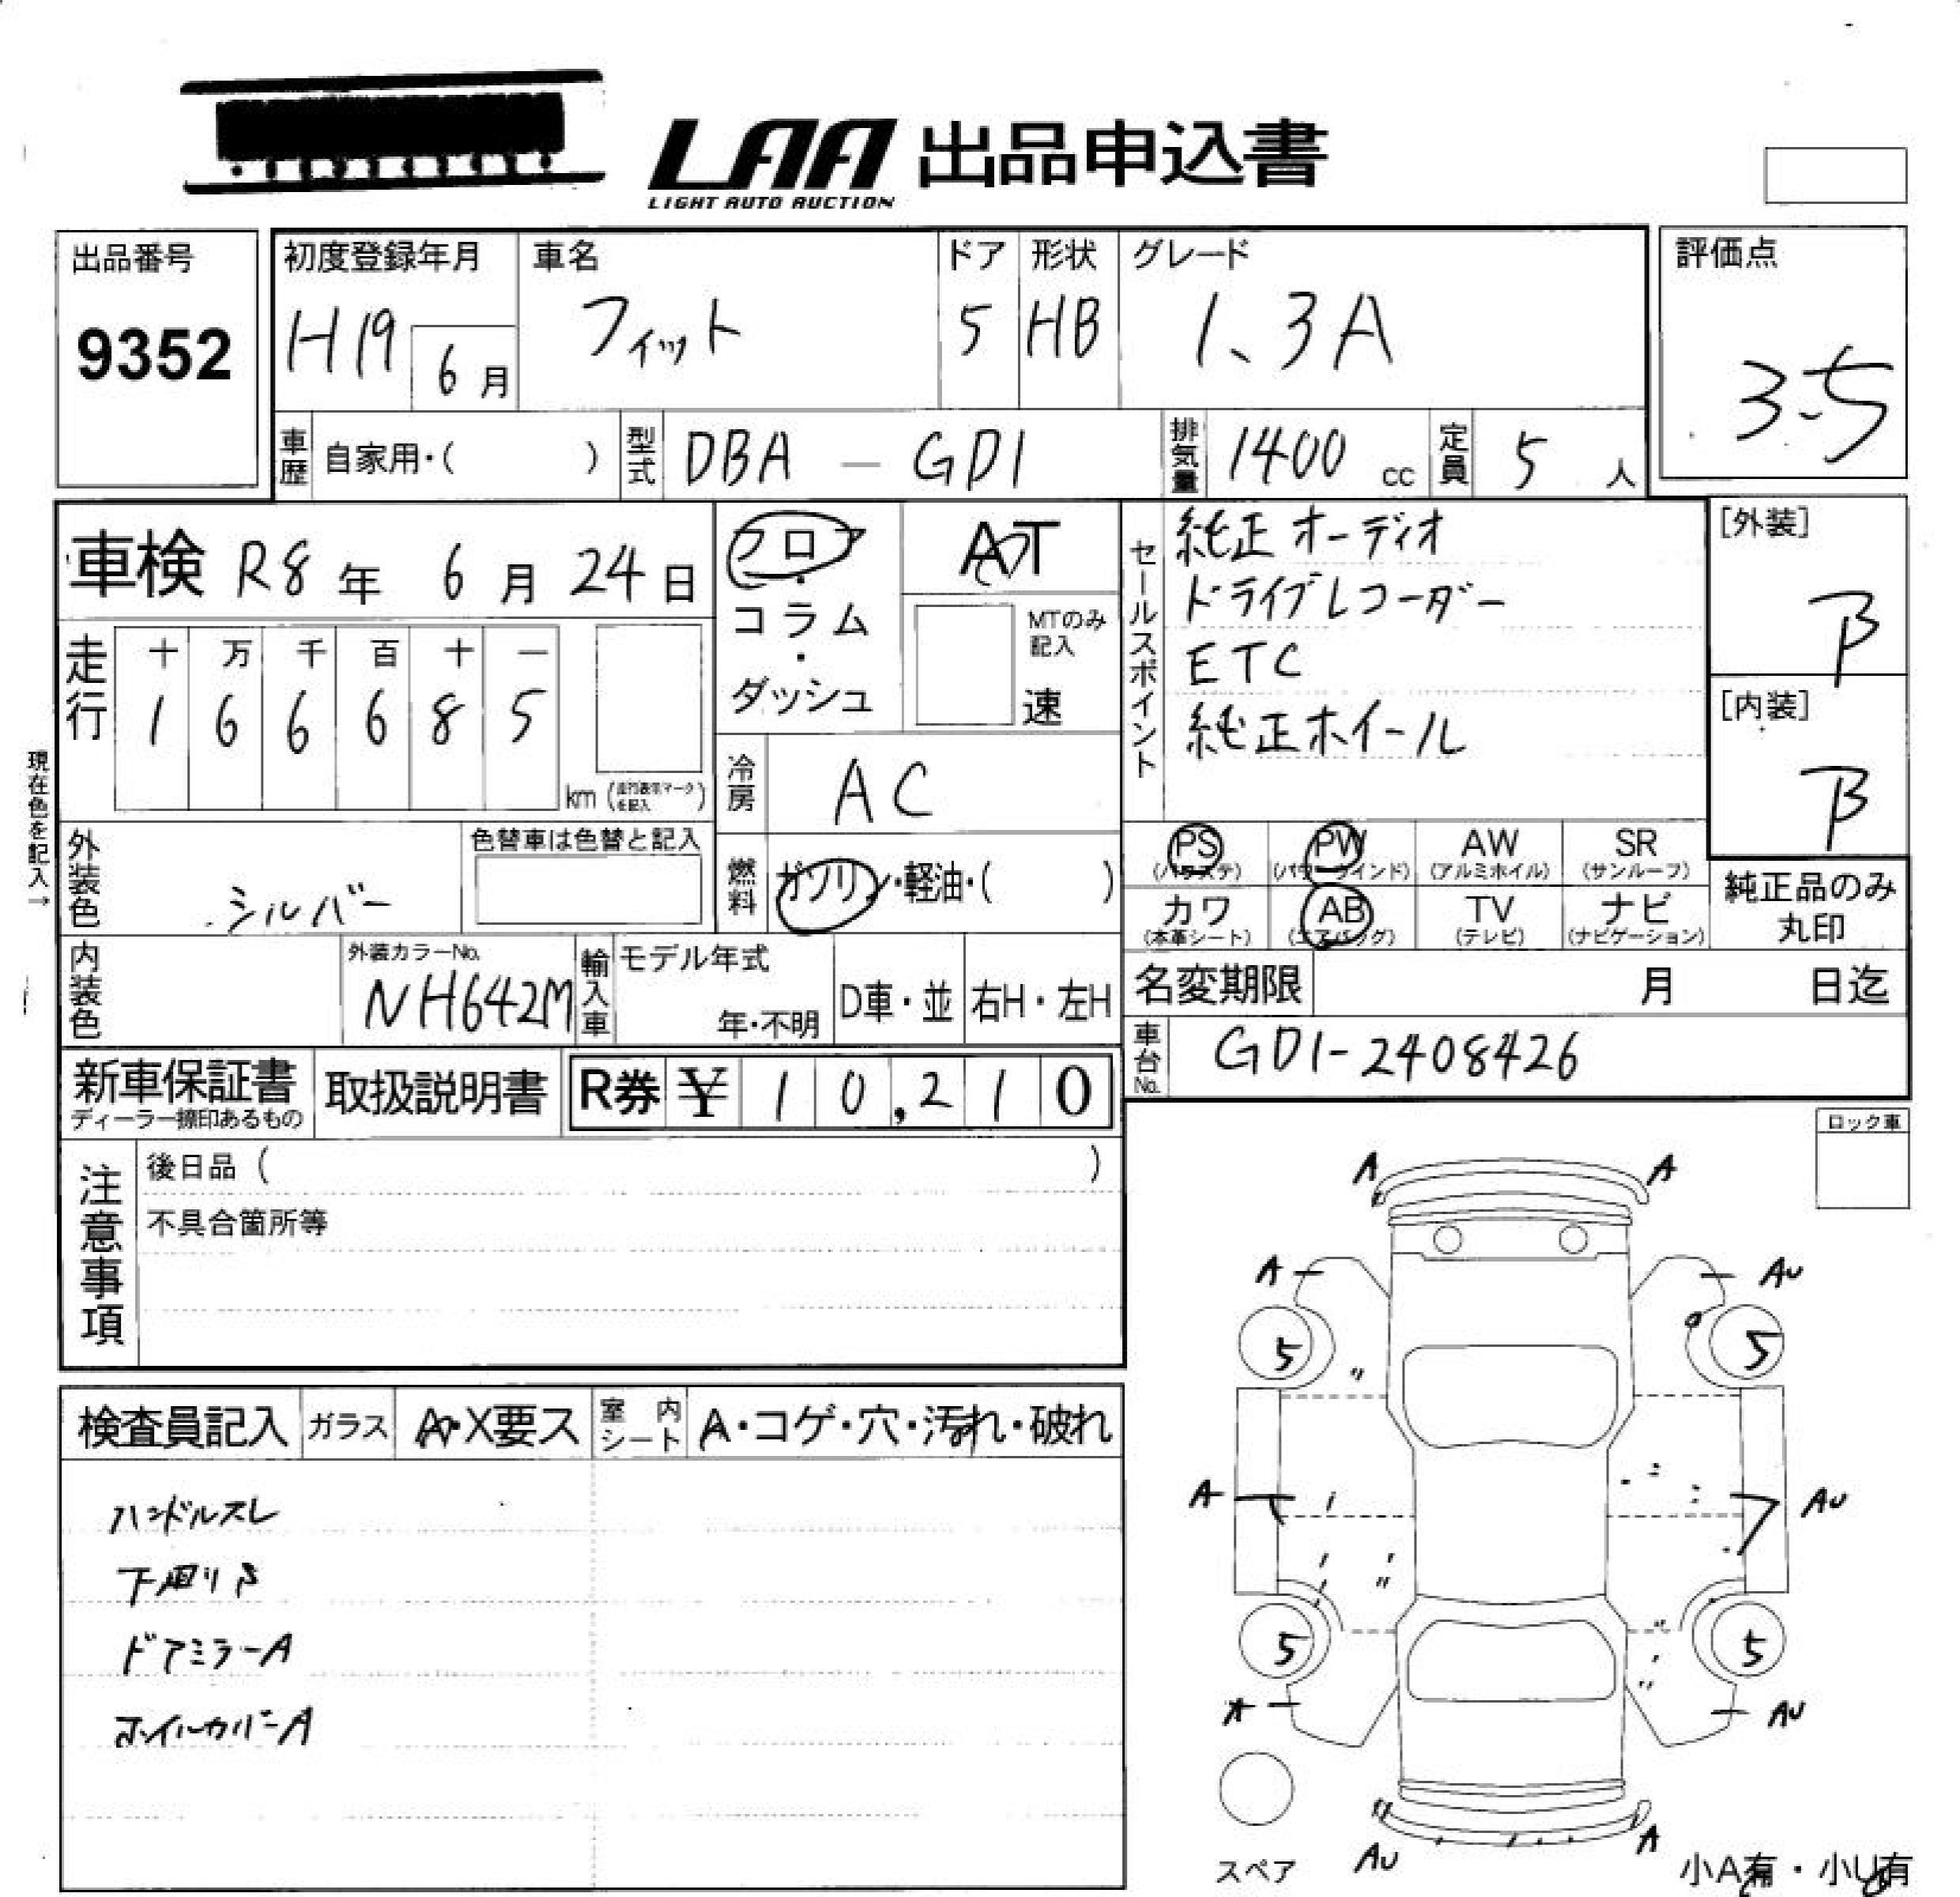 LAA 出品申込書
LIGHT AUTO AUCTION
出品番号
9352
初度登録年月
H19 6月
車名
フィット
ドア
5
形状
HB
グレード
1、3A
評価点
3.5
車歴 自家用・( )
型式 DBA - GD1
排気量 1400 cc
定員 5 人
車検 R8年 6月 24日
フロア・コラム・ダッシュ
AT
MTのみ記入
速
セールスポイント
純正オーディオ
ドライブレコーダー
ETC
純正ホイール
[外装]
B
[内装]
B
走行
十 万 千 百 十 一
1 6 6 6 8 5
km
現在色を記入→
冷房 AC
外装色 シルバー
色替車は色替と記入
燃料 ガソリン・軽油・( )
PS PW AW SR
(パワステ) (パワーウインド) (アルミホイル) (サンルーフ)
カワ AB TV ナビ
(本革シート) (エアバッグ) (テレビ) (ナビゲーション)
純正品のみ
丸印
内装色
外装カラーNo.
NH642M
輸入車
モデル年式
年・不明
D車・並
右H・左H
名変期限 月 日迄
車台No. GD1-2408426
新車保証書
取扱説明書
R券 ¥ 1 0,2 1 0
ロック車
注意事項
後日品( )
不具合箇所等
検査員記入
ガラス A・X要ス
室内シート A・コゲ・穴・汚れ・破れ
ハンドルスレ
下廻りS
ドアミラーA
ホイルカバーA
A A
A AU
5 5
A AU
5 5
A AU
AU A
スペア
小A有・小U有